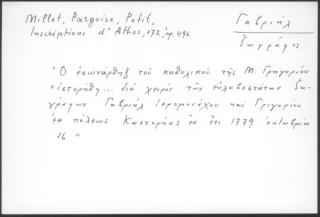 Millet, Pargoire, Petit,
Inscriptions d'Athos, 172, αρ. 496
Γαβριήλ
ζωγράφος
"Ὁ ἐσωνάρθηξ τοῦ καθολικοῦ τῆς Μ. Γρηγορίου
ἱστορήθη... διά χειρός τῶν εὐλαβεστάτων ζω-
γράφων Γαβριήλ ἱερομονάχου καί Γρηγορίου
ἐκ πόλεως Καστορίας ἐν ἔτι 1779 ὀκτωβρίου
16 "